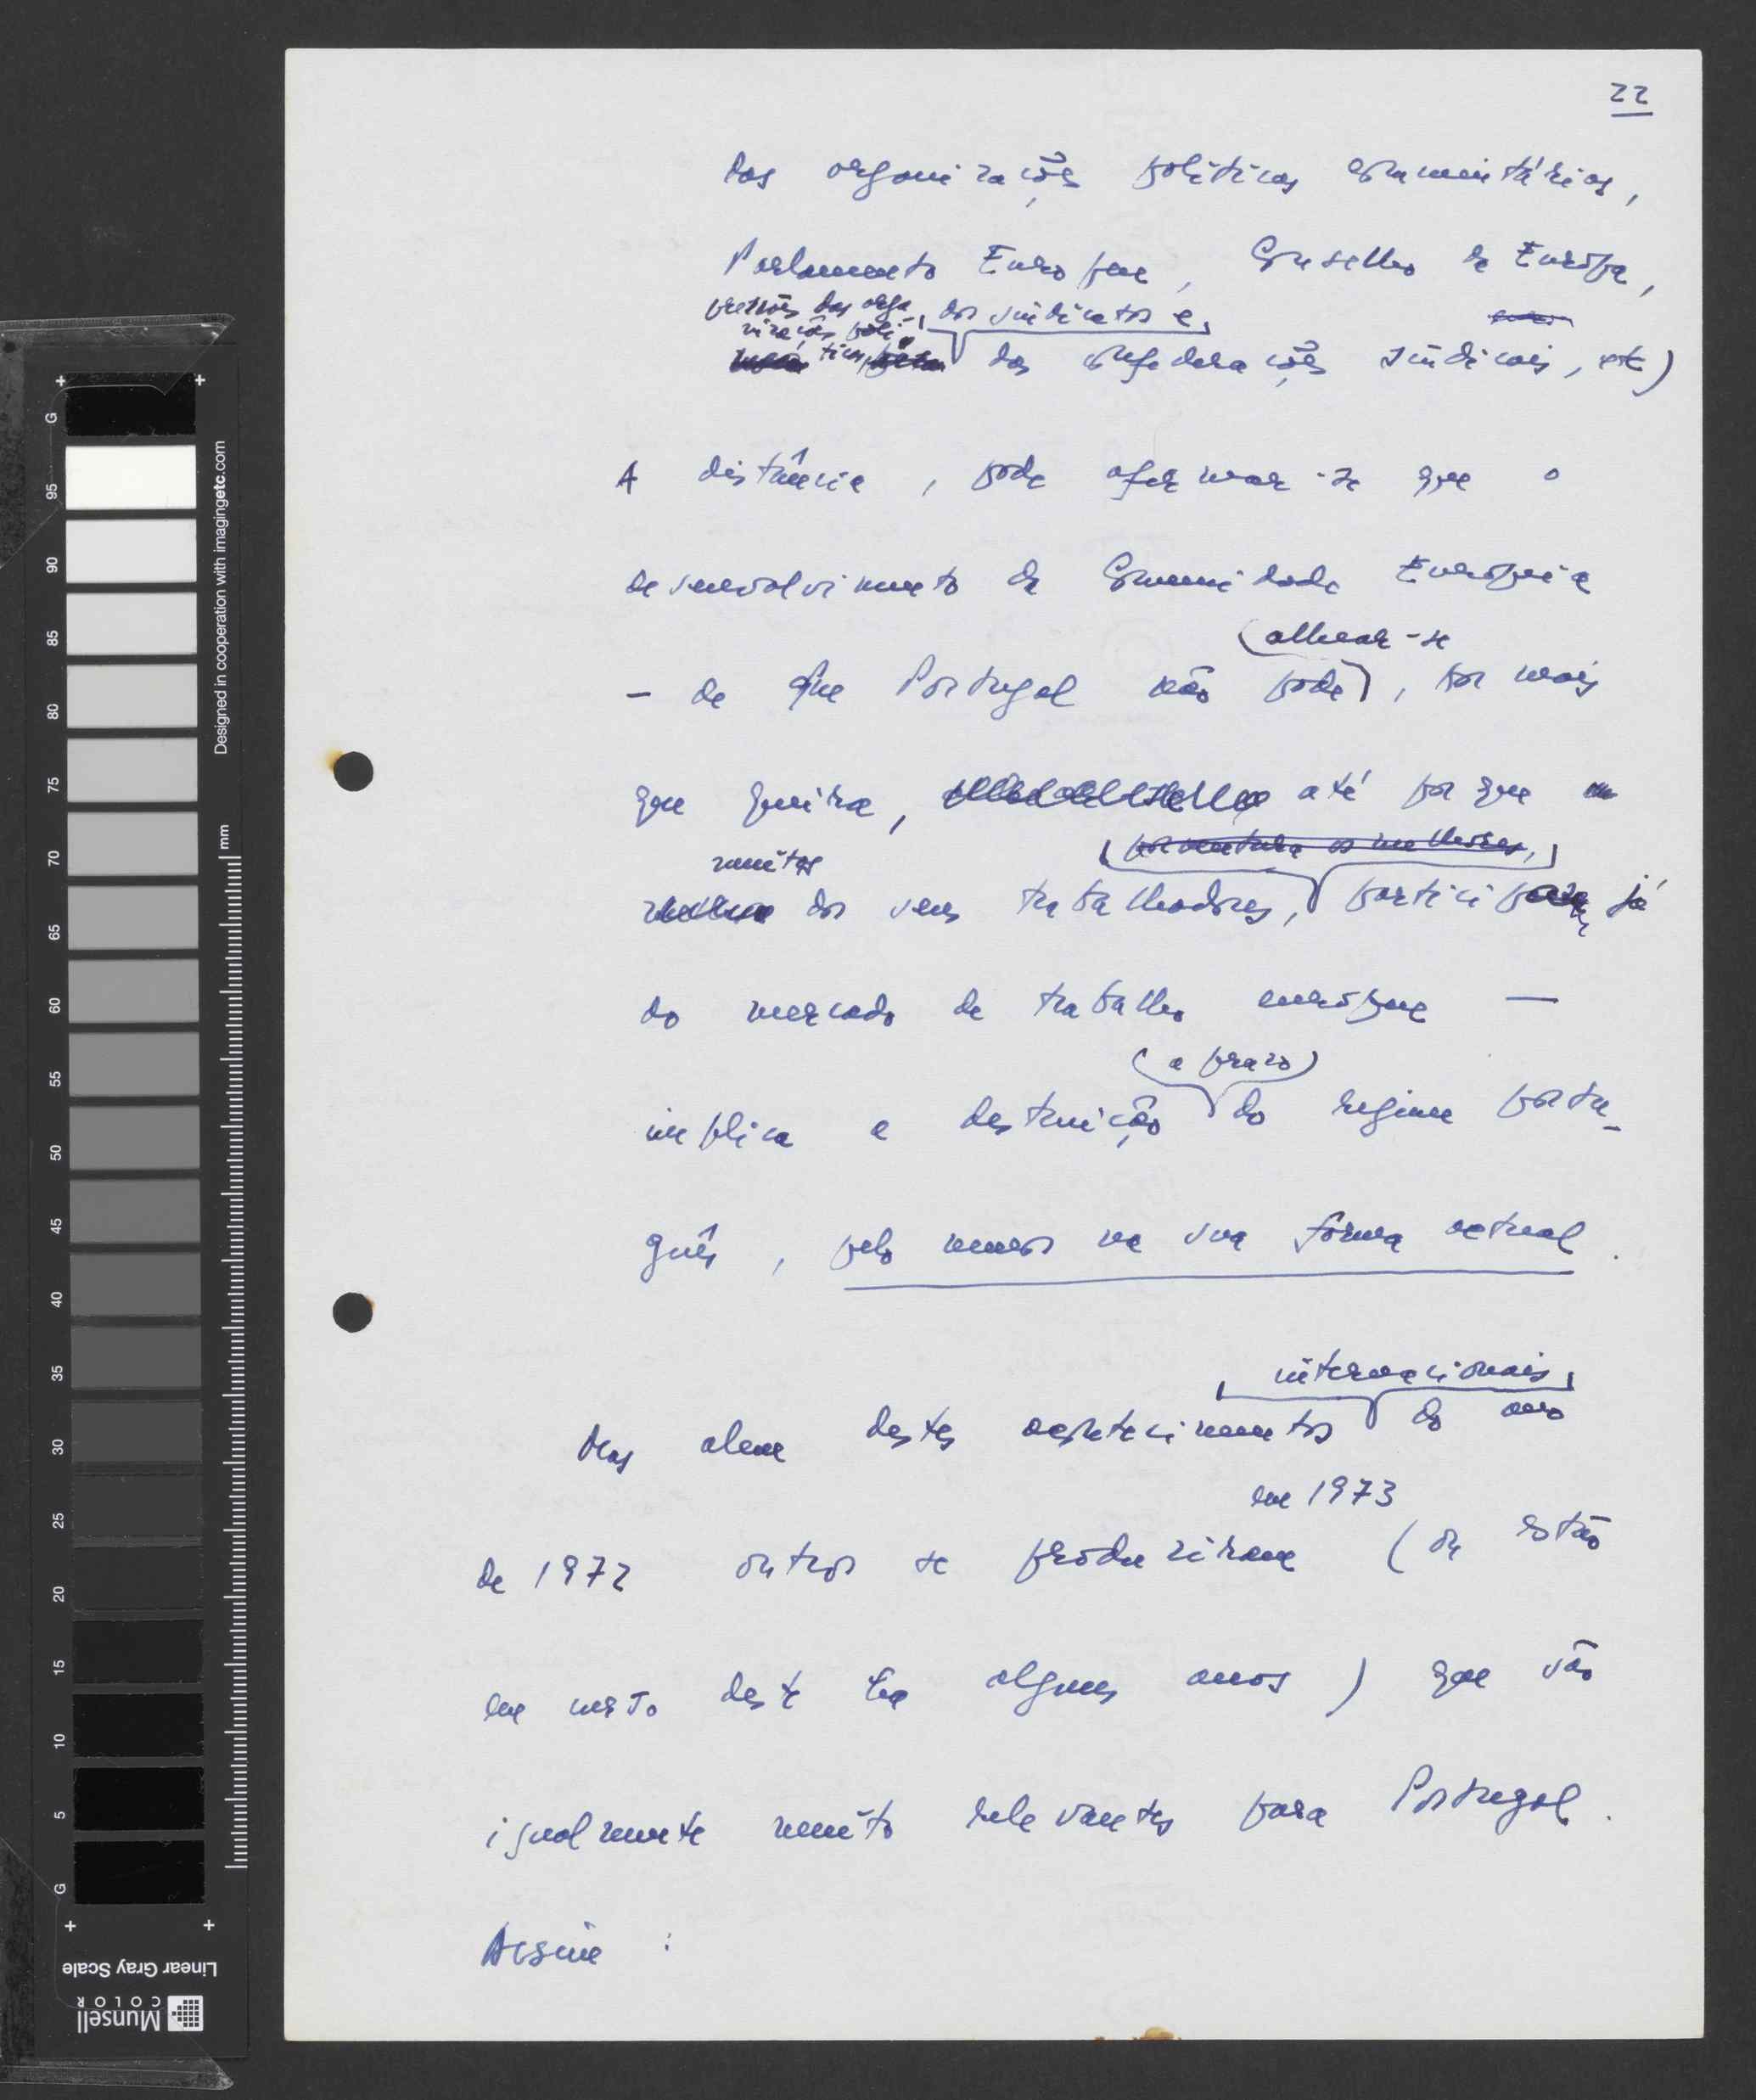 22
das organizações políticas comunitárias,
Parlamento Europeu, Conselho da Europa,
pressões das orga
nizações polí-
ticas, dos sindicatos e
das confederações sindicais, etc)
A distância, pode afirmar-se que o
desenvolvimento da Comunidade Europeia
(alhear-se
- de que Portugal não pode), por mais
que queira, até porque
muitos
porventura os melhores,
dos seus trabalhadores, participam já
do mercado de trabalho europeu —
(a prazo)
implica a destruição do regime portu-
guês, pelo menos na sua forma actual.
internacionais
Mas alem destes acontecimentos do ano
em 1973
de 1972 outros se produziram (ou estão
em curso desde há alguns anos) que são
igualmente muito relevantes para Portugal.
Assim :
G
95
90
85
80
75
70
65
60
55
50
45
40
35
30
25
20
15
10
5
G
mm
Designed in cooperation with imagingetc.com
Linear Gray Scale
Munsell
COLOR